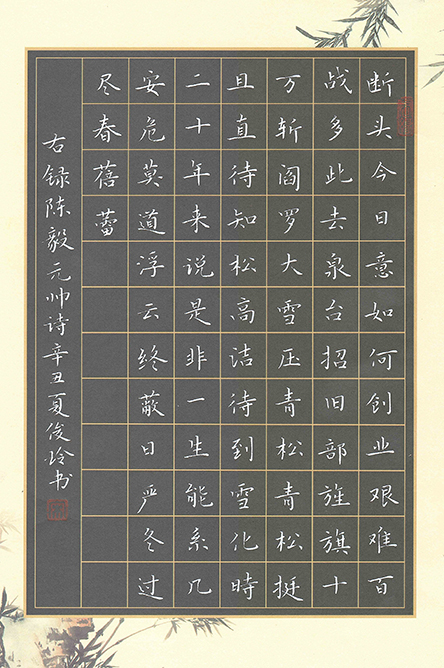 断头今日意如何创业艰难百
战多此去泉台招旧部旌旗十
万斩阎罗大雪压青松青松挺
且直待知松高洁待到雪化時
二十年来说是非一生能系几
安危莫道浮云终蔽日严冬过
尽春蓓蕾
右录陈毅元帅诗辛丑夏俊玲书